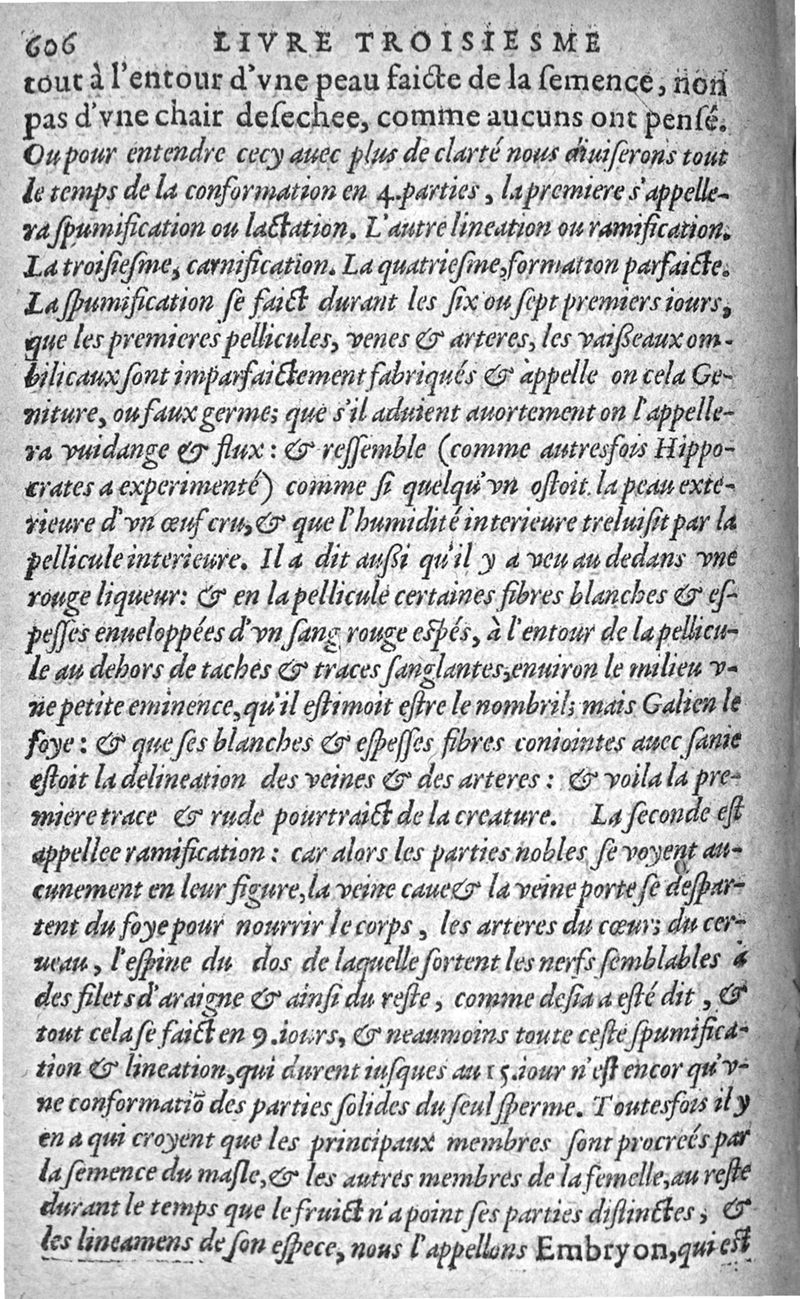 606 LIVRE TROISIESME
tout à l'entour d'vne peau faicte de la ſemence, non
pas d'vne chair deſechee, comme aucuns ont penſé.
Ou pour entendre cecy auec plus de clarté nous diuiſerons tout
le temps de la conformation en 4. parties, la premiere s'appelle-
ra ſpumification ou lactation. L'autre lineation ou ramification.
La troiſieſme, carnification. La quatrieſme, formation parfaicte.
La ſpumification ſe faict durant les ſix ou ſept premiers iours,
que les premieres pellicules, venes & arteres, les vaißeaux om-
bilicaux ſont imparfaictement fabriqués & appelle on cela Ge-
niture, ou faux germe; que s'il aduient auortement on l'appelle-
ra vuidange & flux: & reſſemble (comme autresfois Hippo-
crates a experimenté) comme ſi quelqu'vn oſtoit la peau exte-
rieure d'vn œuf cru, & que l'humidité interieure treluiſit par la
pellicule interieure. Il a dit außi qu'il y a veu au dedans vne
rouge liqueur: & en la pellicule certaines fibres blanches & eſ-
peſſes enueloppées d'vn ſang rouge eſpés, à l'entour de la pellicu-
le au dehors de taches & traces ſanglantes, enuiron le milieu v-
ne petite eminence, qu'il eſtimoit eſtre le nombril; mais Galien le
foye: & que ſes blanches & eſpeſſes fibres coniointes auec ſanie
eſtoit la delineation des veines & des arteres: & voila la pre-
miere trace & rude pourtraict de la creature. La ſeconde eſt
appellee ramification: car alors les parties nobles ſe voyent au-
cunement en leur figure, la veine caue & la veine porte ſe deſpar-
tent du foye pour nourrir le corps, les arteres du cœur; du cer-
ueau, l'eſpine du dos de laquelle ſortent les nerfs ſemblables à
des filets d'araigne & ainſi du reſte, comme deſia a eſté dit, &
tout cela ſe faict en 9. iours, & neaumoins toute ceſte ſpumifica-
tion & lineation, qui durent iuſques au 15. iour n'eſt encor qu'v-
ne conformatiõ des parties ſolides du ſeul ſperme. Toutesfois il y
en a qui croyent que les principaux membres ſont procreés par
la ſemence du maſle, & les autres membres de la femelle, au reſte
durant le temps que le fruict n'a point ſes parties diſtinctes, &
les lineamens de ſon eſpece, nous l'appellons Embryon, qui eſt